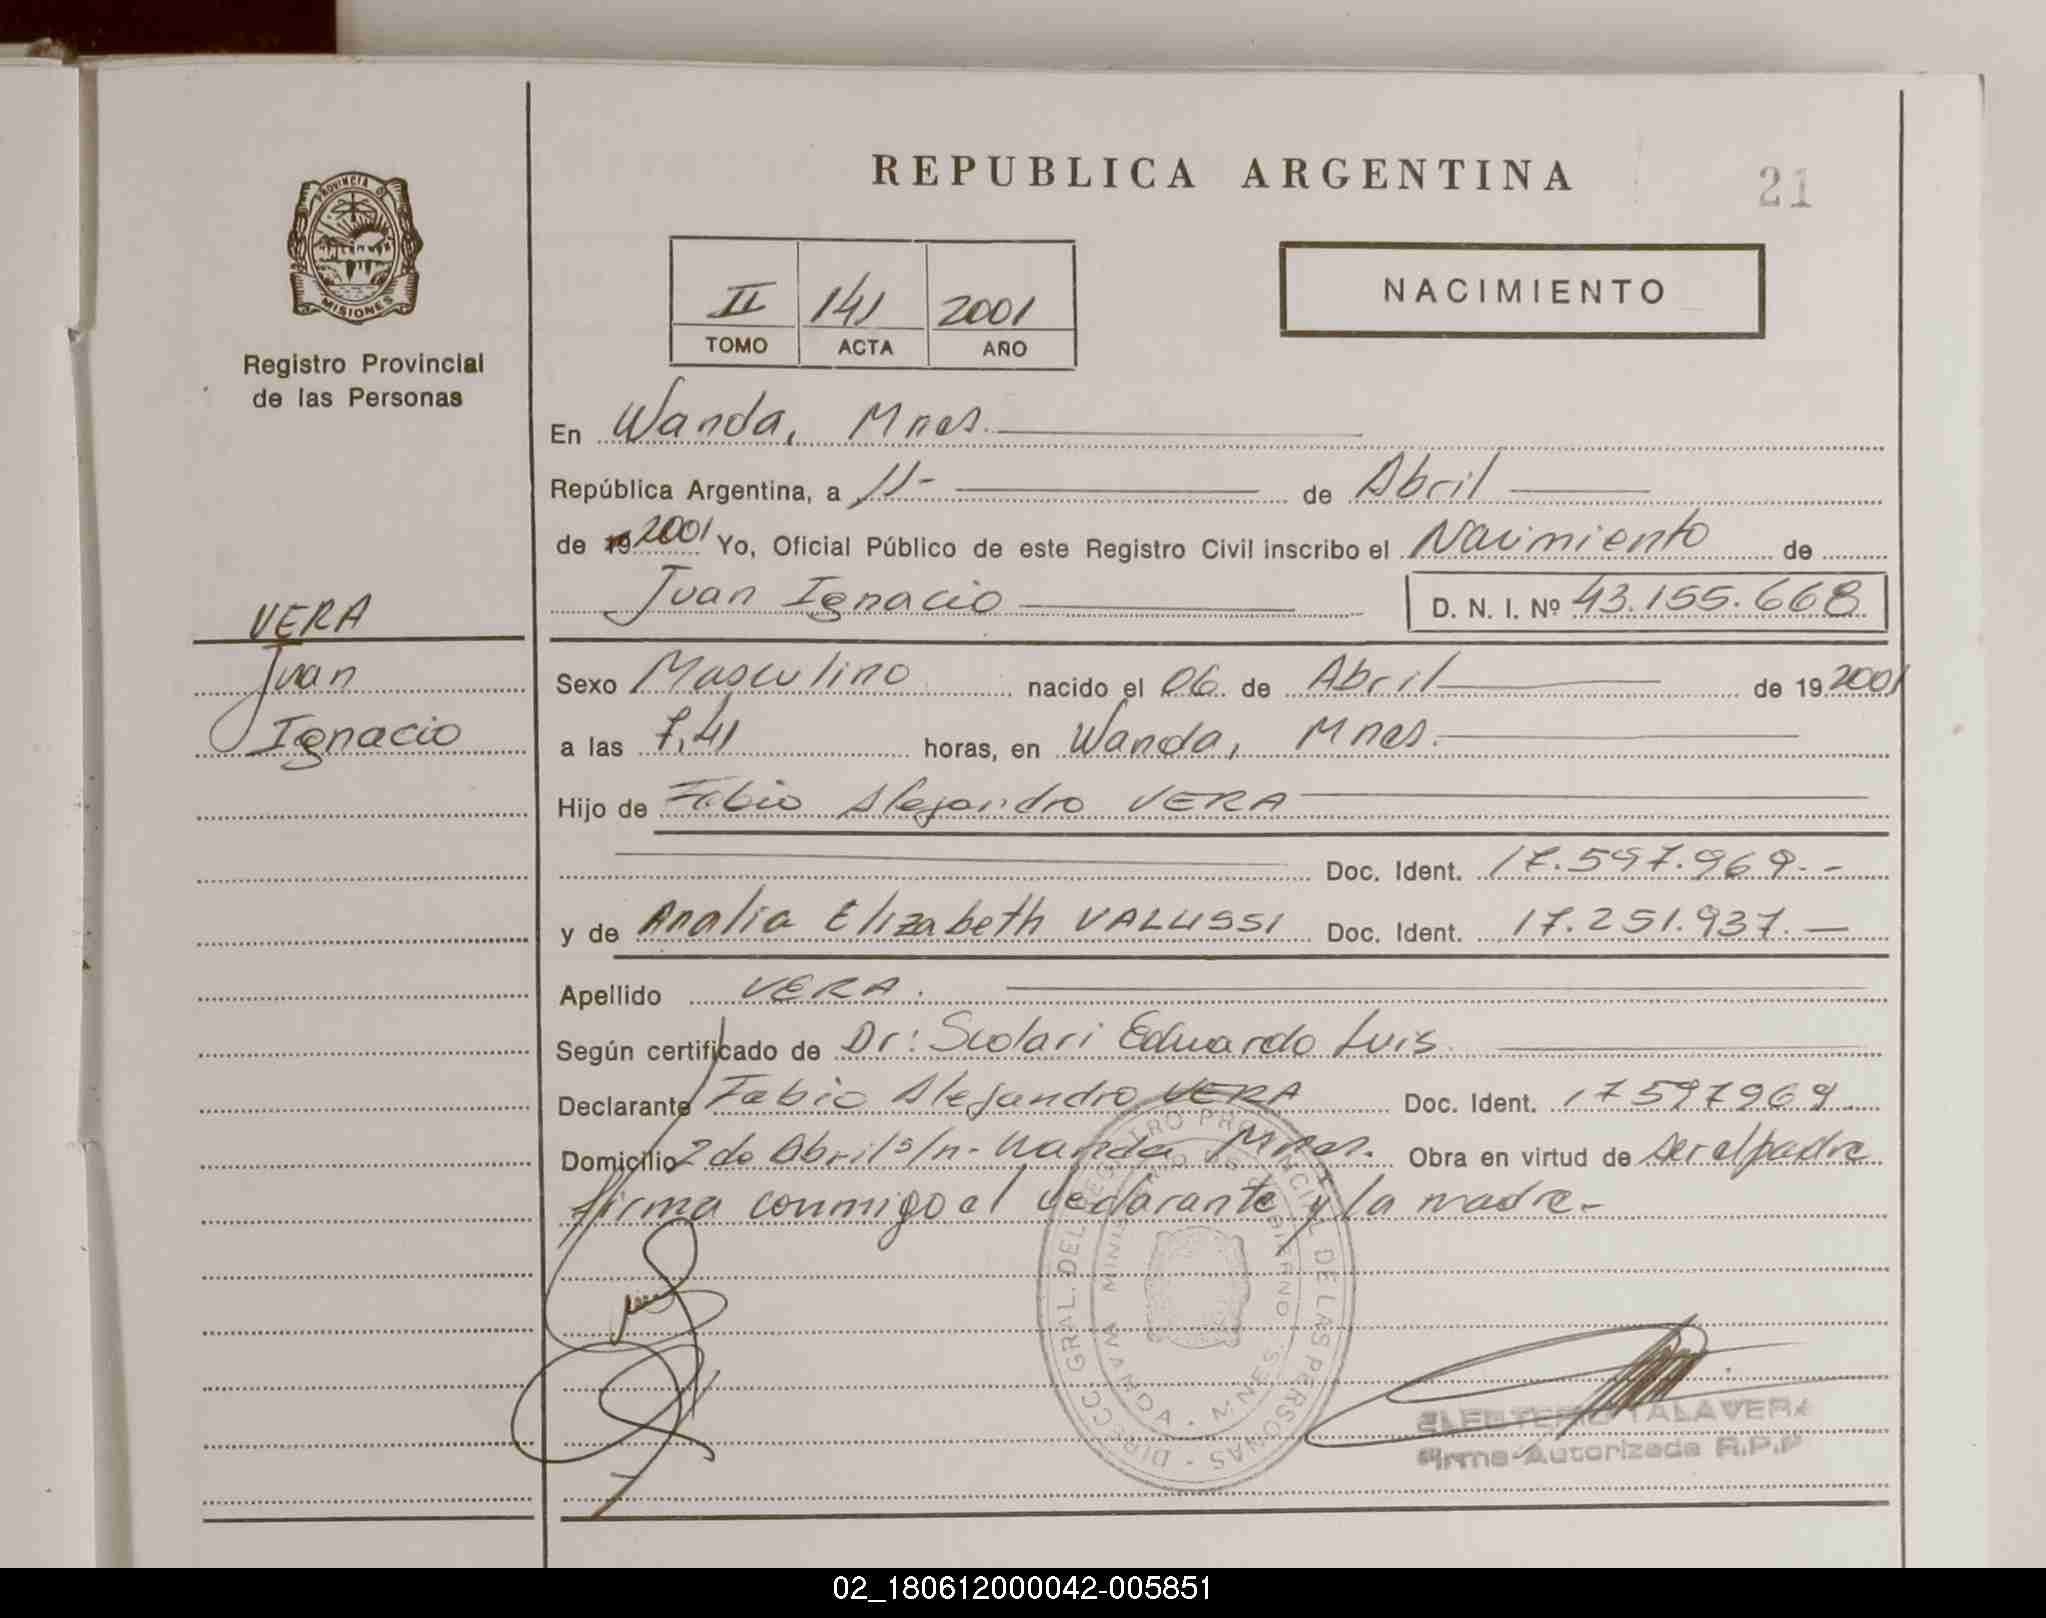 REPUBLICA ARGENTINA
21
PROVINCIA DE
MISIONES
Registro Provincial
de las Personas
II 141 2001
TOMO ACTA AÑO
NACIMIENTO
En Wanda, Mnes.
República Argentina, a 11- de Abril
de 19 2001 Yo, Oficial Público de este Registro Civil inscribo el Nacimiento de
Juan Ignacio D. N. I. Nº 43.155.668
VERA
Juan
Ignacio
Sexo Masculino nacido el 06 de Abril de 19 2001
a las 7,41 horas, en Wanda, Mnes.
Hijo de Fabio Alejandro VERA
Doc. Ident. 17.597.969.-
y de Analia Elizabeth VALUSSI Doc. Ident. 17.251.937.-
Apellido VERA.
Según certificado de Dr: Scolari Eduardo Luis
Declarante Fabio Alejandro VERA Doc. Ident. 17597969
Domicilio 2 de Abril s/n- Wanda Mnes. Obra en virtud de ser el padre
firma conmigo el declarante y la madre.-
DIRECC. GRAL. DEL REGISTRO PROVINCIAL DE LAS PERSONAS
MINISTERIO DE GOBIERNO
WANDA - MNES.
ELEUTERIO TALAVERA
Firma Autorizada R.P.P
02_180612000042-005851